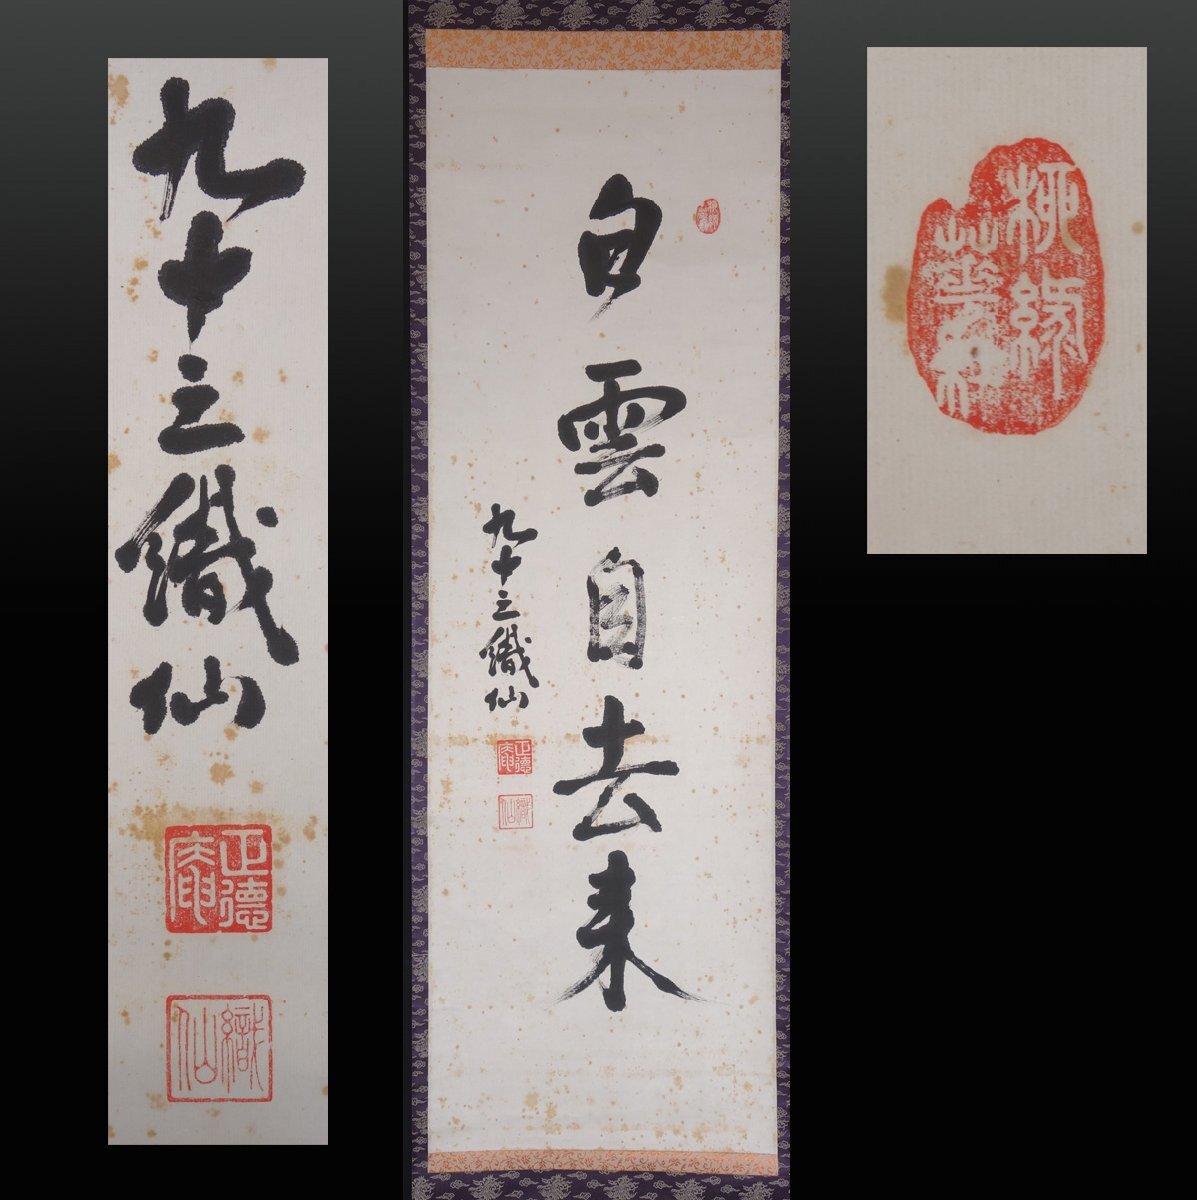 九十三織仙
正德
織仙
柳緑
白雲自去来
九十三織仙
正德
織仙
柳緑
華